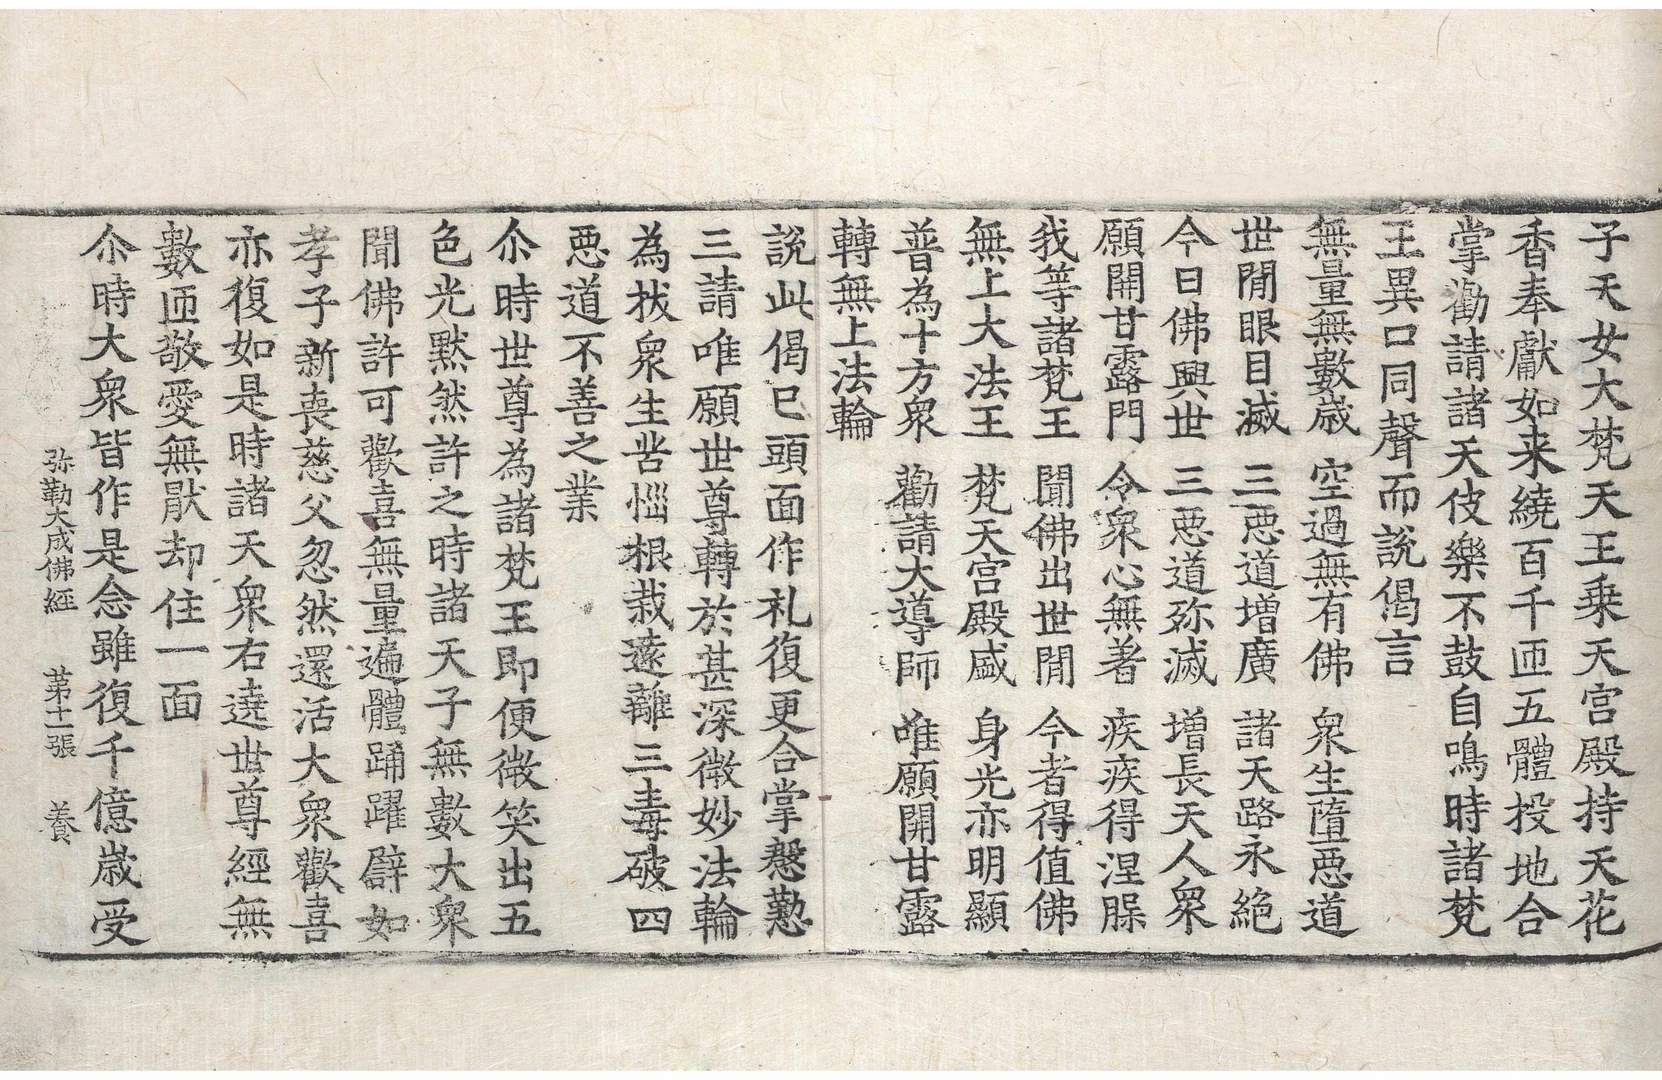 子天女大梵天王乗天宮殿持天花
香奉獻如来繞百千匝五體投地合
掌勸請諸天伎樂不鼓自鳴時諸梵
王異口同聲而說偈言
無量無數歲　空過無有佛　衆生墮惡道
世閒眼目滅　三惡道增廣　諸天路永絕
今日佛興世　三惡道弥滅　增長天人衆
願開甘露門　令衆心無著　疾疾得涅槃
我等諸梵王　聞佛出世閒　今者得值佛
無上大法王　梵天宮殿盛　身光亦明顯
普為十方衆　勸請大導師　唯願開甘露
轉無上法輪
說此偈已頭面作礼復更合掌慇懃
三請唯願世尊轉於甚深微妙法輪
為拔衆生苦惱根栽遠離三毒破四
惡道不善之業
尒時世尊為諸梵王即便微笑出五
色光黙然許之時諸天子無數大衆
聞佛許可歡喜無量遍體踊躍譬如
孝子新喪慈父忽然還活大衆歡喜
亦復如是時諸天衆右遶世尊經無
數匝敬愛無猒却住一面
尒時大衆皆作是念雖復千億歲受
弥勒大成佛經　苐十一張　養